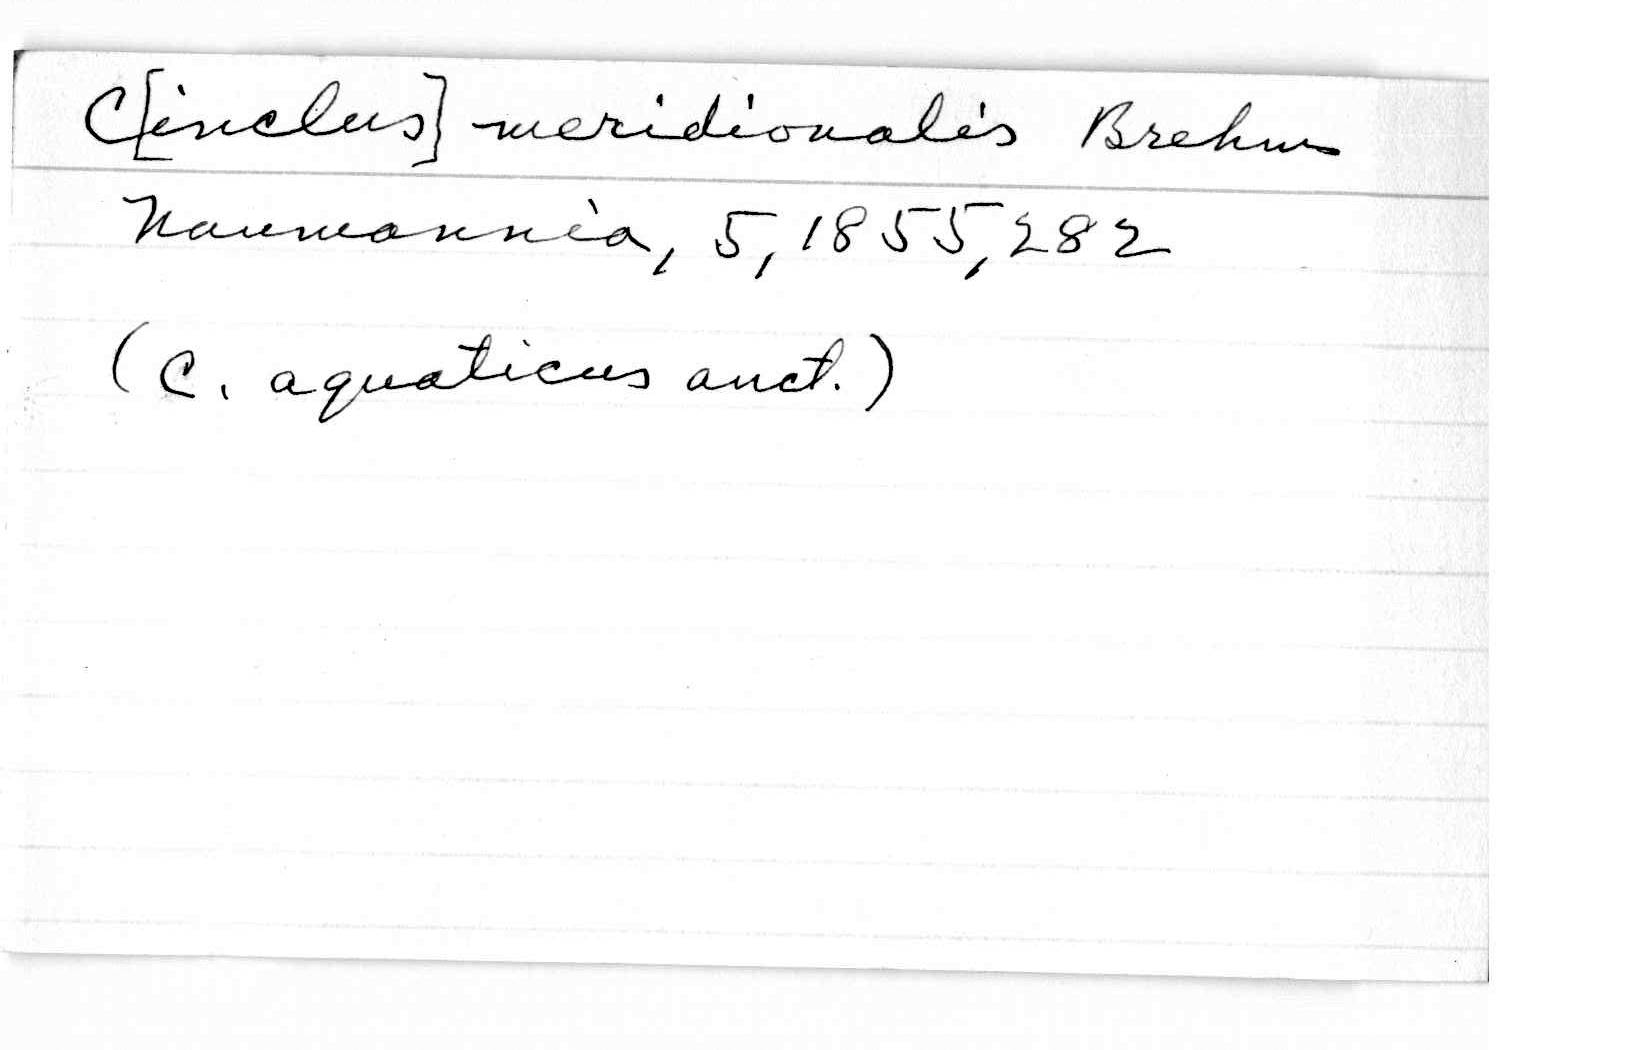 C[inclus] meridionalis Brehm
Naumannia, 5, 1855, 282
(C. aquaticus auct.)